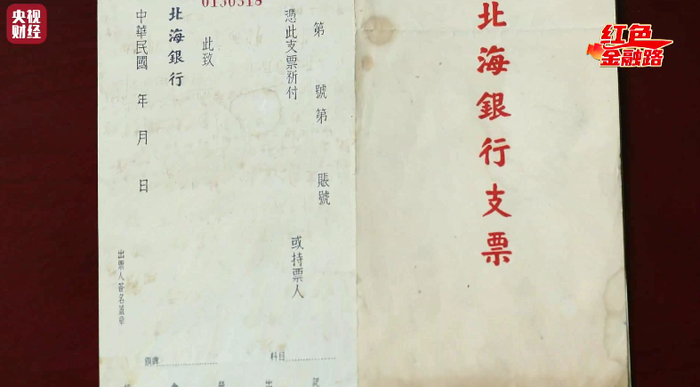 央视
财经
红色
金融路
0130318
第 號第 賬號
憑此支票祈付
或持票人
此致
北海銀行
中華民國 年 月 日
出票人簽名蓋章
科目
北海銀行支票